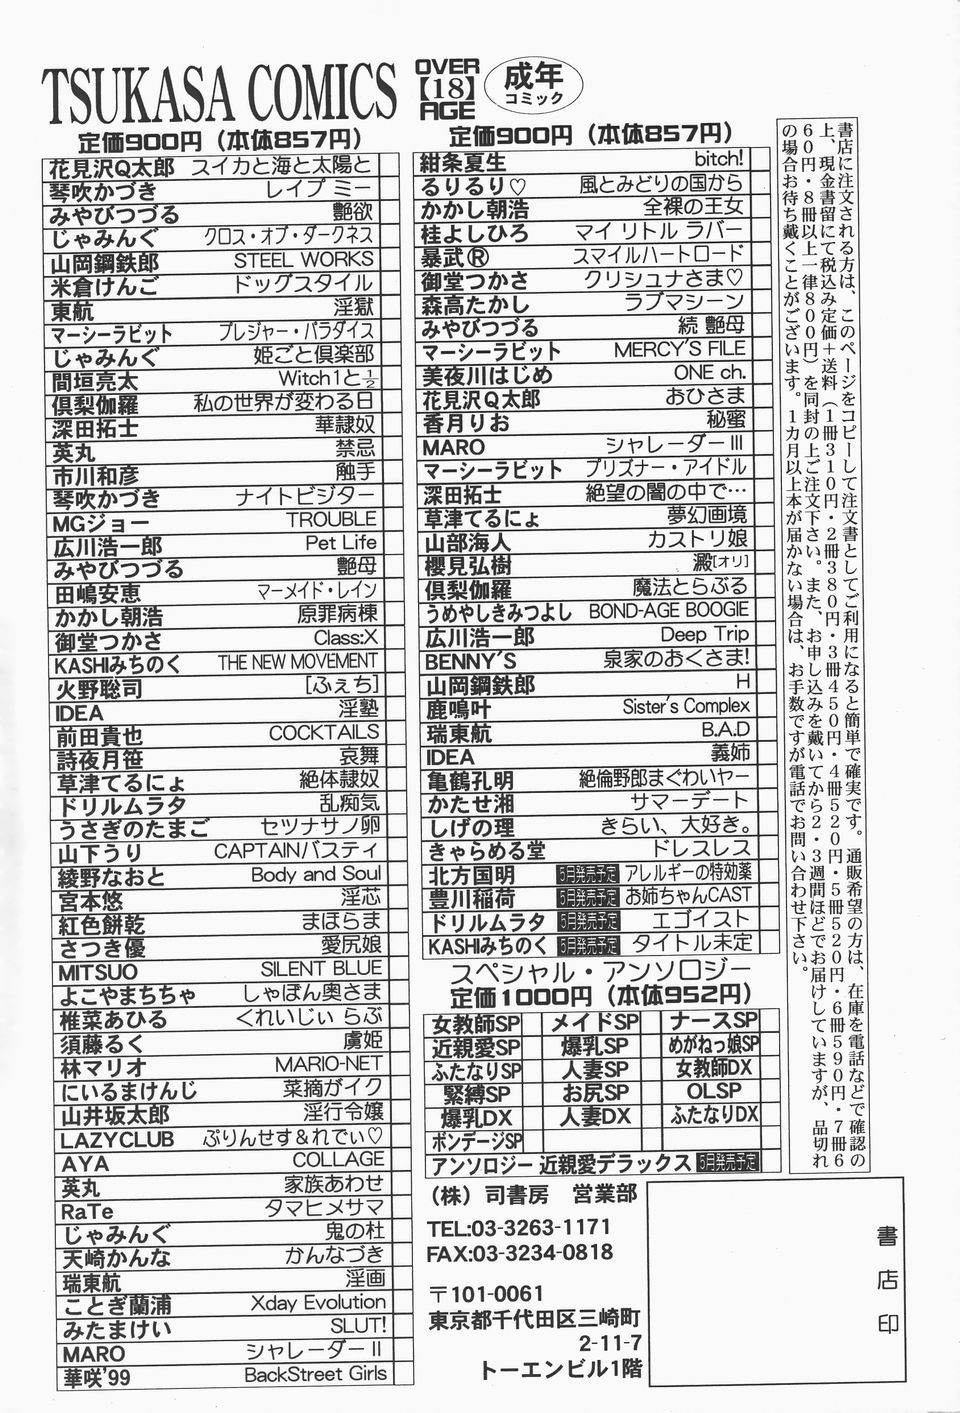 TSUKASA COMICS
OVER
【18】
AGE
成年
コミック
定価900円（本体857円）
花見沢Q太郎 スイカと海と太陽と
琴吹かづき レイプ ミー
みやびつづる 艶欲
じゃみんぐ クロス・オブ・ダークネス
山岡鋼鉄郎 STEEL WORKS
米倉けんご ドッグスタイル
東航 淫獄
マーシーラビット プレジャー・パラダイス
じゃみんぐ 姫ごと倶楽部
間垣亮太 Witch1と1/2
倶梨伽羅 私の世界が変わる日
深田拓士 華隷奴
英丸 禁忌
市川和彦 触手
琴吹かづき ナイトビジター
MGジョー TROUBLE
広川浩一郎 Pet Life
みやびつづる 艶母
田嶋安恵 マーメイド・レイン
かかし朝浩 原罪病棟
御堂つかさ Class:X
KASHIみちのく THE NEW MOVEMENT
火野聡司 [ふぇち]
IDEA 淫塾
前田貴也 COCKTAILS
詩夜月笹 哀舞
草津てるにょ 絶体隷奴
ドリルムラタ 乱痴気
うさぎのたまご セツナサノ卵
山下うり CAPTAINバスティ
綾野なおと Body and Soul
宮本悠 淫芯
紅色餅乾 まほらま
さつき優 愛尻娘
MITSUO SILENT BLUE
よこやまちちゃ しゃぼん奥さま
椎菜あひる くれいじぃ らぶ
須藤るく 虜姫
林マリオ MARIO-NET
にいるまけんじ 菜摘がイク
山井坂太郎 淫行令嬢
LAZYCLUB ぷりんせす&れでぃ♡
AYA COLLAGE
英丸 家族あわせ
RaTe タマヒメサマ
じゃみんぐ 鬼の杜
天崎かんな かんなづき
瑞東航 淫画
ことぎ蘭浦 Xday Evolution
みたまけい SLUT!
MARO シャレーダーII
華咲'99 BackStreet Girls
定価900円（本体857円）
紺条夏生 bitch!
るりるり♡ 風とみどりの国から
かかし朝浩 全裸の王女
桂よしひろ マイ リトル ラバー
暴武Ⓡ スマイルハートロード
御堂つかさ クリシュナさま♡
森高たかし ラブマシーン
みやびつづる 続 艶母
マーシーラビット MERCY'S FILE
美夜川はじめ ONE ch.
花見沢Q太郎 おひさま
香月りお 秘蜜
MARO シャレーダーIII
マーシーラビット プリズナー・アイドル
深田拓士 絶望の闇の中で…
草津てるにょ 夢幻画境
山部海人 カストリ娘
櫻見弘樹 澱[オリ]
倶梨伽羅 魔法とらぶる
うめやしきみつよし BOND-AGE BOOGIE
広川浩一郎 Deep Trip
BENNY'S 泉家のおくさま!
山岡鋼鉄郎 H
鹿鳴叶 Sister's Complex
瑞東航 B.A.D
IDEA 義姉
亀鶴孔明 絶倫野郎まぐわいヤー
かたせ湘 サマーデート
しげの理 きらい、大好き。
きゃらめる堂 ドレスレス
北方国明 5月発売予定 アレルギーの特効薬
豊川稲荷 5月発売予定 お姉ちゃんCAST
ドリルムラタ 5月発売予定 エゴイスト
KASHIみちのく 5月発売予定 タイトル未定
スペシャル・アンソロジー
定価1000円（本体952円）
女教師SP メイドSP ナースSP
近親愛SP 爆乳SP めがねっ娘SP
ふたなりSP 人妻SP 女教師DX
緊縛SP お尻SP OLSP
爆乳DX 人妻DX ふたなりDX
ボンデージSP
アンソロジー 近親愛デラックス 5月発売予定
（株）司書房 営業部
TEL:03-3263-1171
FAX:03-3234-0818
〒101-0061
東京都千代田区三崎町
2-11-7
トーエンビル1階
書店に注文される方は、このページをコピーして注文書としてご利用になると簡単で確実です。通販希望の方は、在庫を電話などで確認の
上、現金書留にて税込み定価＋送料（1冊310円・2冊380円・3冊450円・4冊520円・5冊520円・6冊590円・7冊6
60円・8冊以上一律800円）を同封の上ご注文下さい。また、お申し込みを戴いてから2・3週間ほどでお届けしていますが、品切れ
の場合お待ち戴くことがございます。1カ月以上本が届かない場合は、お手数ですが電話でお問い合わせ下さい。
書店印